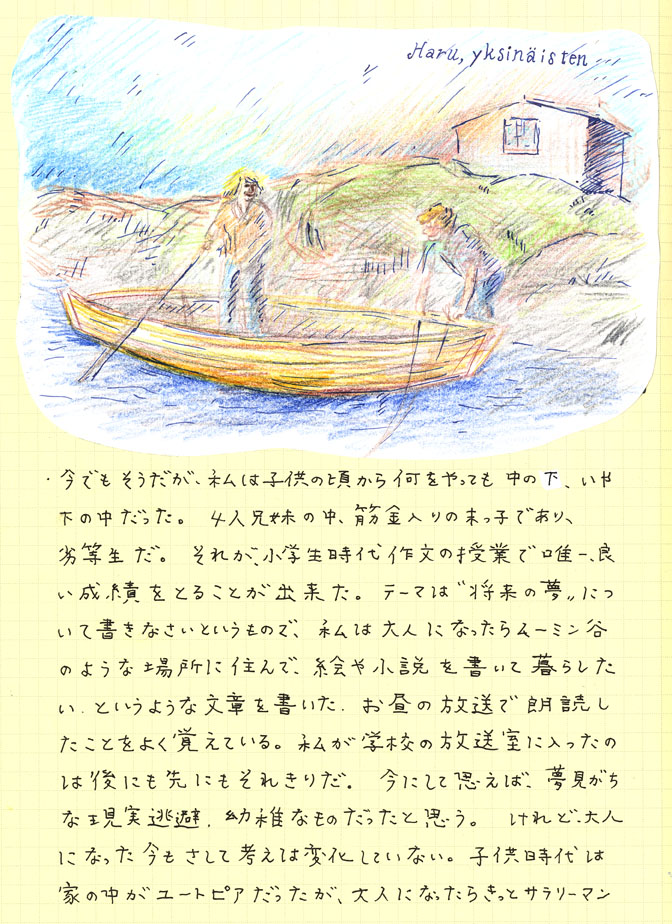 Haru, yksinäisten
・今でもそうだが、私は子供の頃から何をやっても中の下、いや
下の中だった。 4人兄妹の中、筋金入りの末っ子であり、
劣等生だ。 それが、小学生時代作文の授業で唯一、良
い成績をとることが出来た。 テーマは〝将来の夢〟につ
いて書きなさいというもので、私は大人になったらムーミン谷
のような場所に住んで、絵や小説を書いて暮らした
い、というような文章を書いた。お昼の放送で朗読し
たことをよく覚えている。私が学校の放送室に入ったの
は後にも先にもそれきりだ。 今にして思えば、夢見がち
な現実逃避、幼稚なものだったと思う。 けれど、大人
になった今もさして考えは変化していない。子供時代は
家の中がユートピアだったが、大人になったらきっとサラリーマン